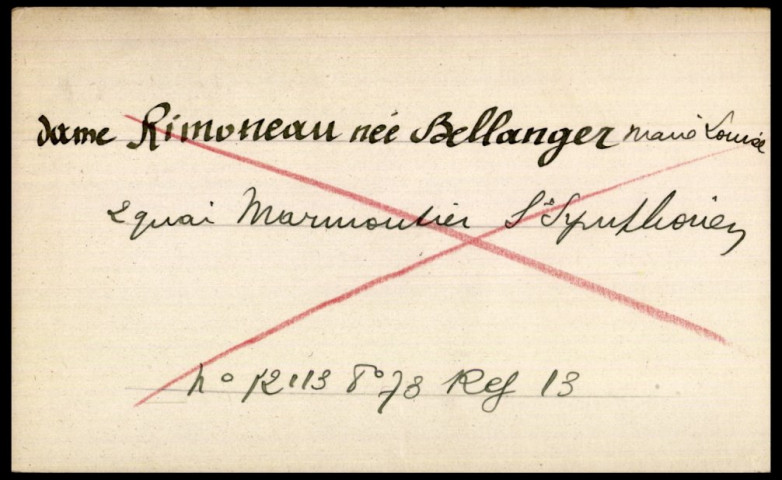 Dame Rimoneau née Bellanger Marie Louise
2 quai Marmoutier St Symphorien
no 12113 Fo 73 Reg 13